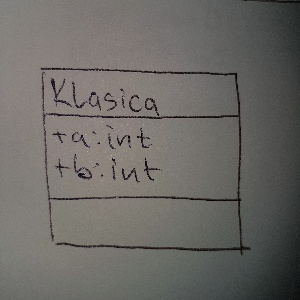 Klasica
+a:int
+b:int